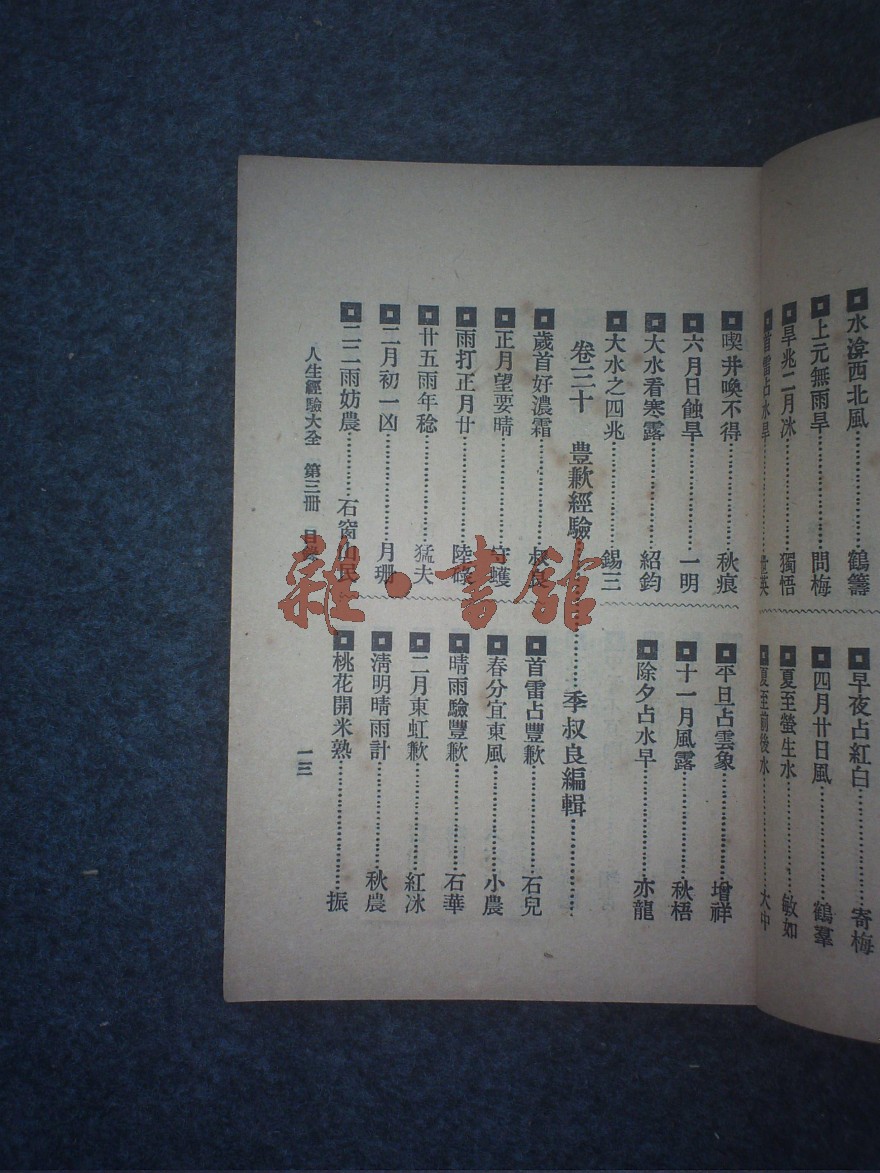 水渰西北風……鶴籌
上元無雨旱……問梅
旱兆二月冰……獨悟
首雷占水旱……世英
早夜占紅白……寄梅
四月廿日風……鶴羣
夏至螢生水……敏如
夏至前後水……大中
喫井喚不得……秋痕
六月日蝕旱……一明
大水看寒露……紹鈞
大水之四兆……錫三
平旦占雲象……增祥
十一月風露……秋梧
除夕占水旱……亦龍
卷三十 豊歉經驗……季叔良編輯……
歲首好濃霜……叔良
正月望要晴……守蠖
雨打正月廿……陸碌
廿五雨年稔……猛夫
二月初一凶……月珊
二二雨妨農……石窗山民
首雷占豐歉……石兒
春分宜東風……小農
晴雨驗豐歉……石華
二月東虹歉……紅冰
淸明晴雨計……秋農
桃花開米熟……振
人生經驗大全 第三冊 目錄
一三
雜·書館